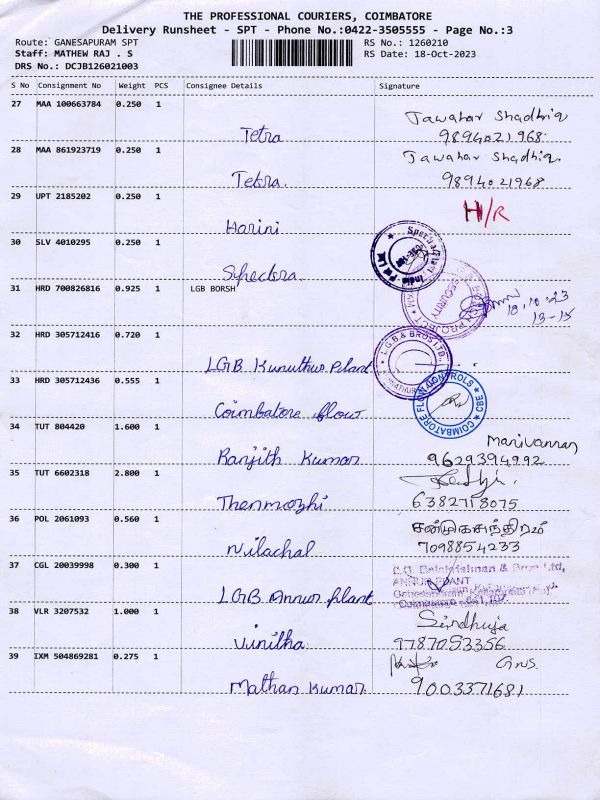 THE PROFESSIONAL COURIERS, COIMBATORE
Delivery Runsheet - SPT - Phone No.:0422-3505555 - Page No.:3
Route: GANESAPURAM SPT RS No.: 1260210
Staff: MATHEW RAJ . S RS Date: 18-Oct-2023
DRS No.: DCJB126021003
S No Consignment No Weight PCS Consignee Details Signature
27 MAA 100663784 0.250 1 Jawahar Shadhiq
Tetra 9894021968
28 MAA 861923719 0.250 1 Jawahar Shadhiq.
Tetra. 9894021968
29 UPT 2185202 0.250 1 H/R
Harini
30 SLV 4010295 0.250 1
Spectra.
31 HRD 700826816 0.925 1 LGB BORSH
SECURITY
PROJECT
18.10.23
13-15
32 HRD 305712416 0.720 1 L.G.B. & BROS LTD.,
LGB Kunuthur Plant
33 HRD 305712436 0.555 1 COIMBATORE FLOW CONTROLS CBE
Coimbatore flow
34 TUT 804420 1.600 1 Manivannan
Ranjith Kumar 9629394992
35 TUT 6602318 2.800 1
Thenmozhi 6382718075
36 POL 2061093 0.560 1
Nilachal 7098854233
37 CGL 20039998 0.300 1 L.G. Balakrishnan & Bros Ltd,
ANNUR PLANT
LGB Annur plant
38 VLR 3207532 1.000 1 Sindhuja
Vinitha 9787053356
39 IXM 504869281 0.275 1
Mathan Kumar 9003371681